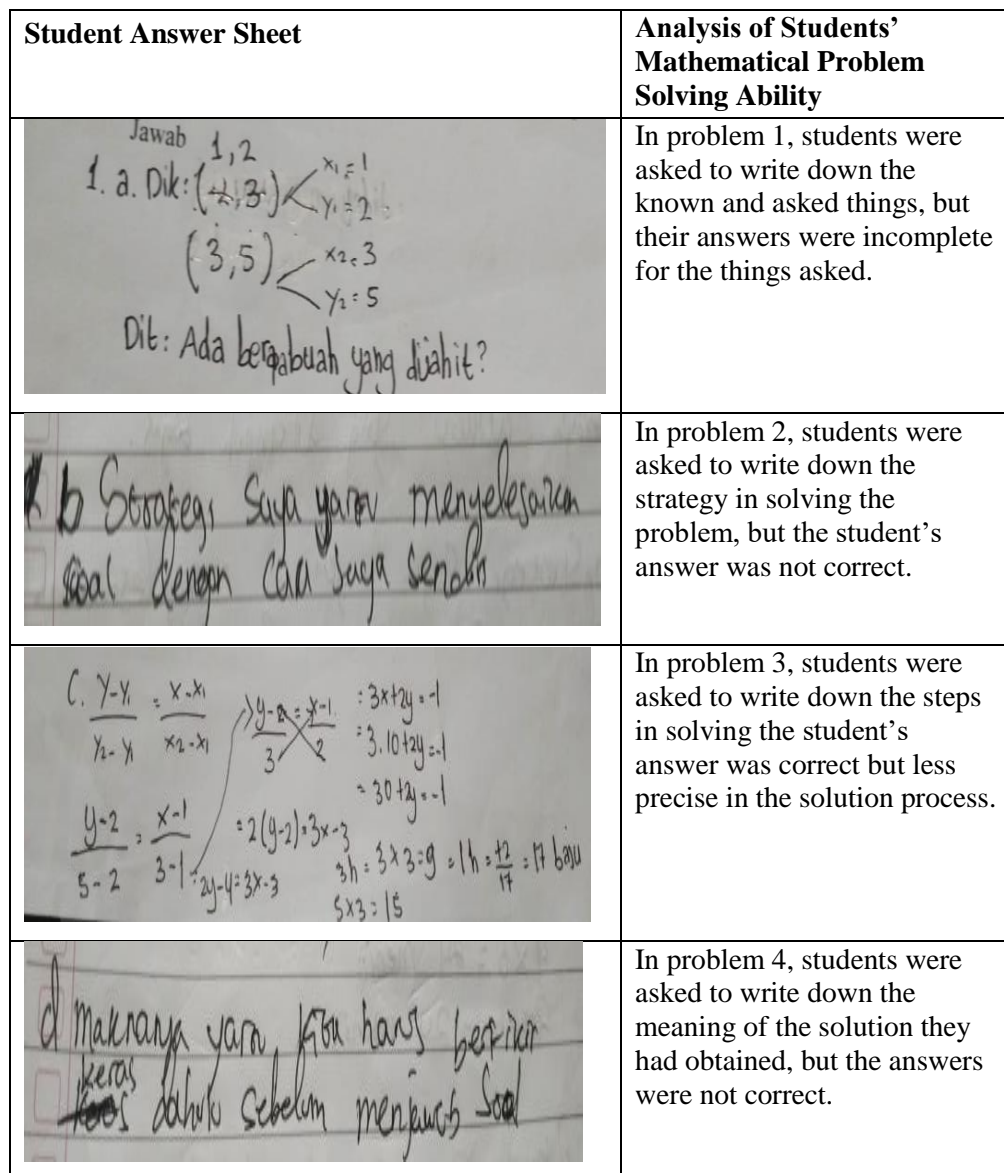 Student Answer Sheet
Analysis of Students’
Mathematical Problem
Solving Ability
Jawab
1,2
1. a. Dik: ( ,3) x₁ = 1
y₁ = 2
(3,5) x₂ = 3
y₂ = 5
Dit: Ada berapabuah yang dijahit?
In problem 1, students were
asked to write down the
known and asked things, but
their answers were incomplete
for the things asked.
b Strategi Saya menyelesaikan
soal dengan Saya
In problem 2, students were
asked to write down the
strategy in solving the
problem, but the student’s
answer was not correct.
C. y-y₁/y₂-y₁ = x-x₁/x₂-x₁
y-2/5-2 = x-1/3-1
y- /3 = x-1/2
= 2(y-2) = 3x-3
= 2y-4 = 3x-3
= 3x+2y = -1
= 3.10+2y = -1
= 30+2y = -1
3h = 3x3 = 9 = 1h = = 17 baju
5x3 = 15
In problem 3, students were
asked to write down the steps
in solving the student’s
answer was correct but less
precise in the solution process.
d maknanya berfikir
keras dahulu Sebelum menjawab Soal
In problem 4, students were
asked to write down the
meaning of the solution they
had obtained, but the answers
were not correct.